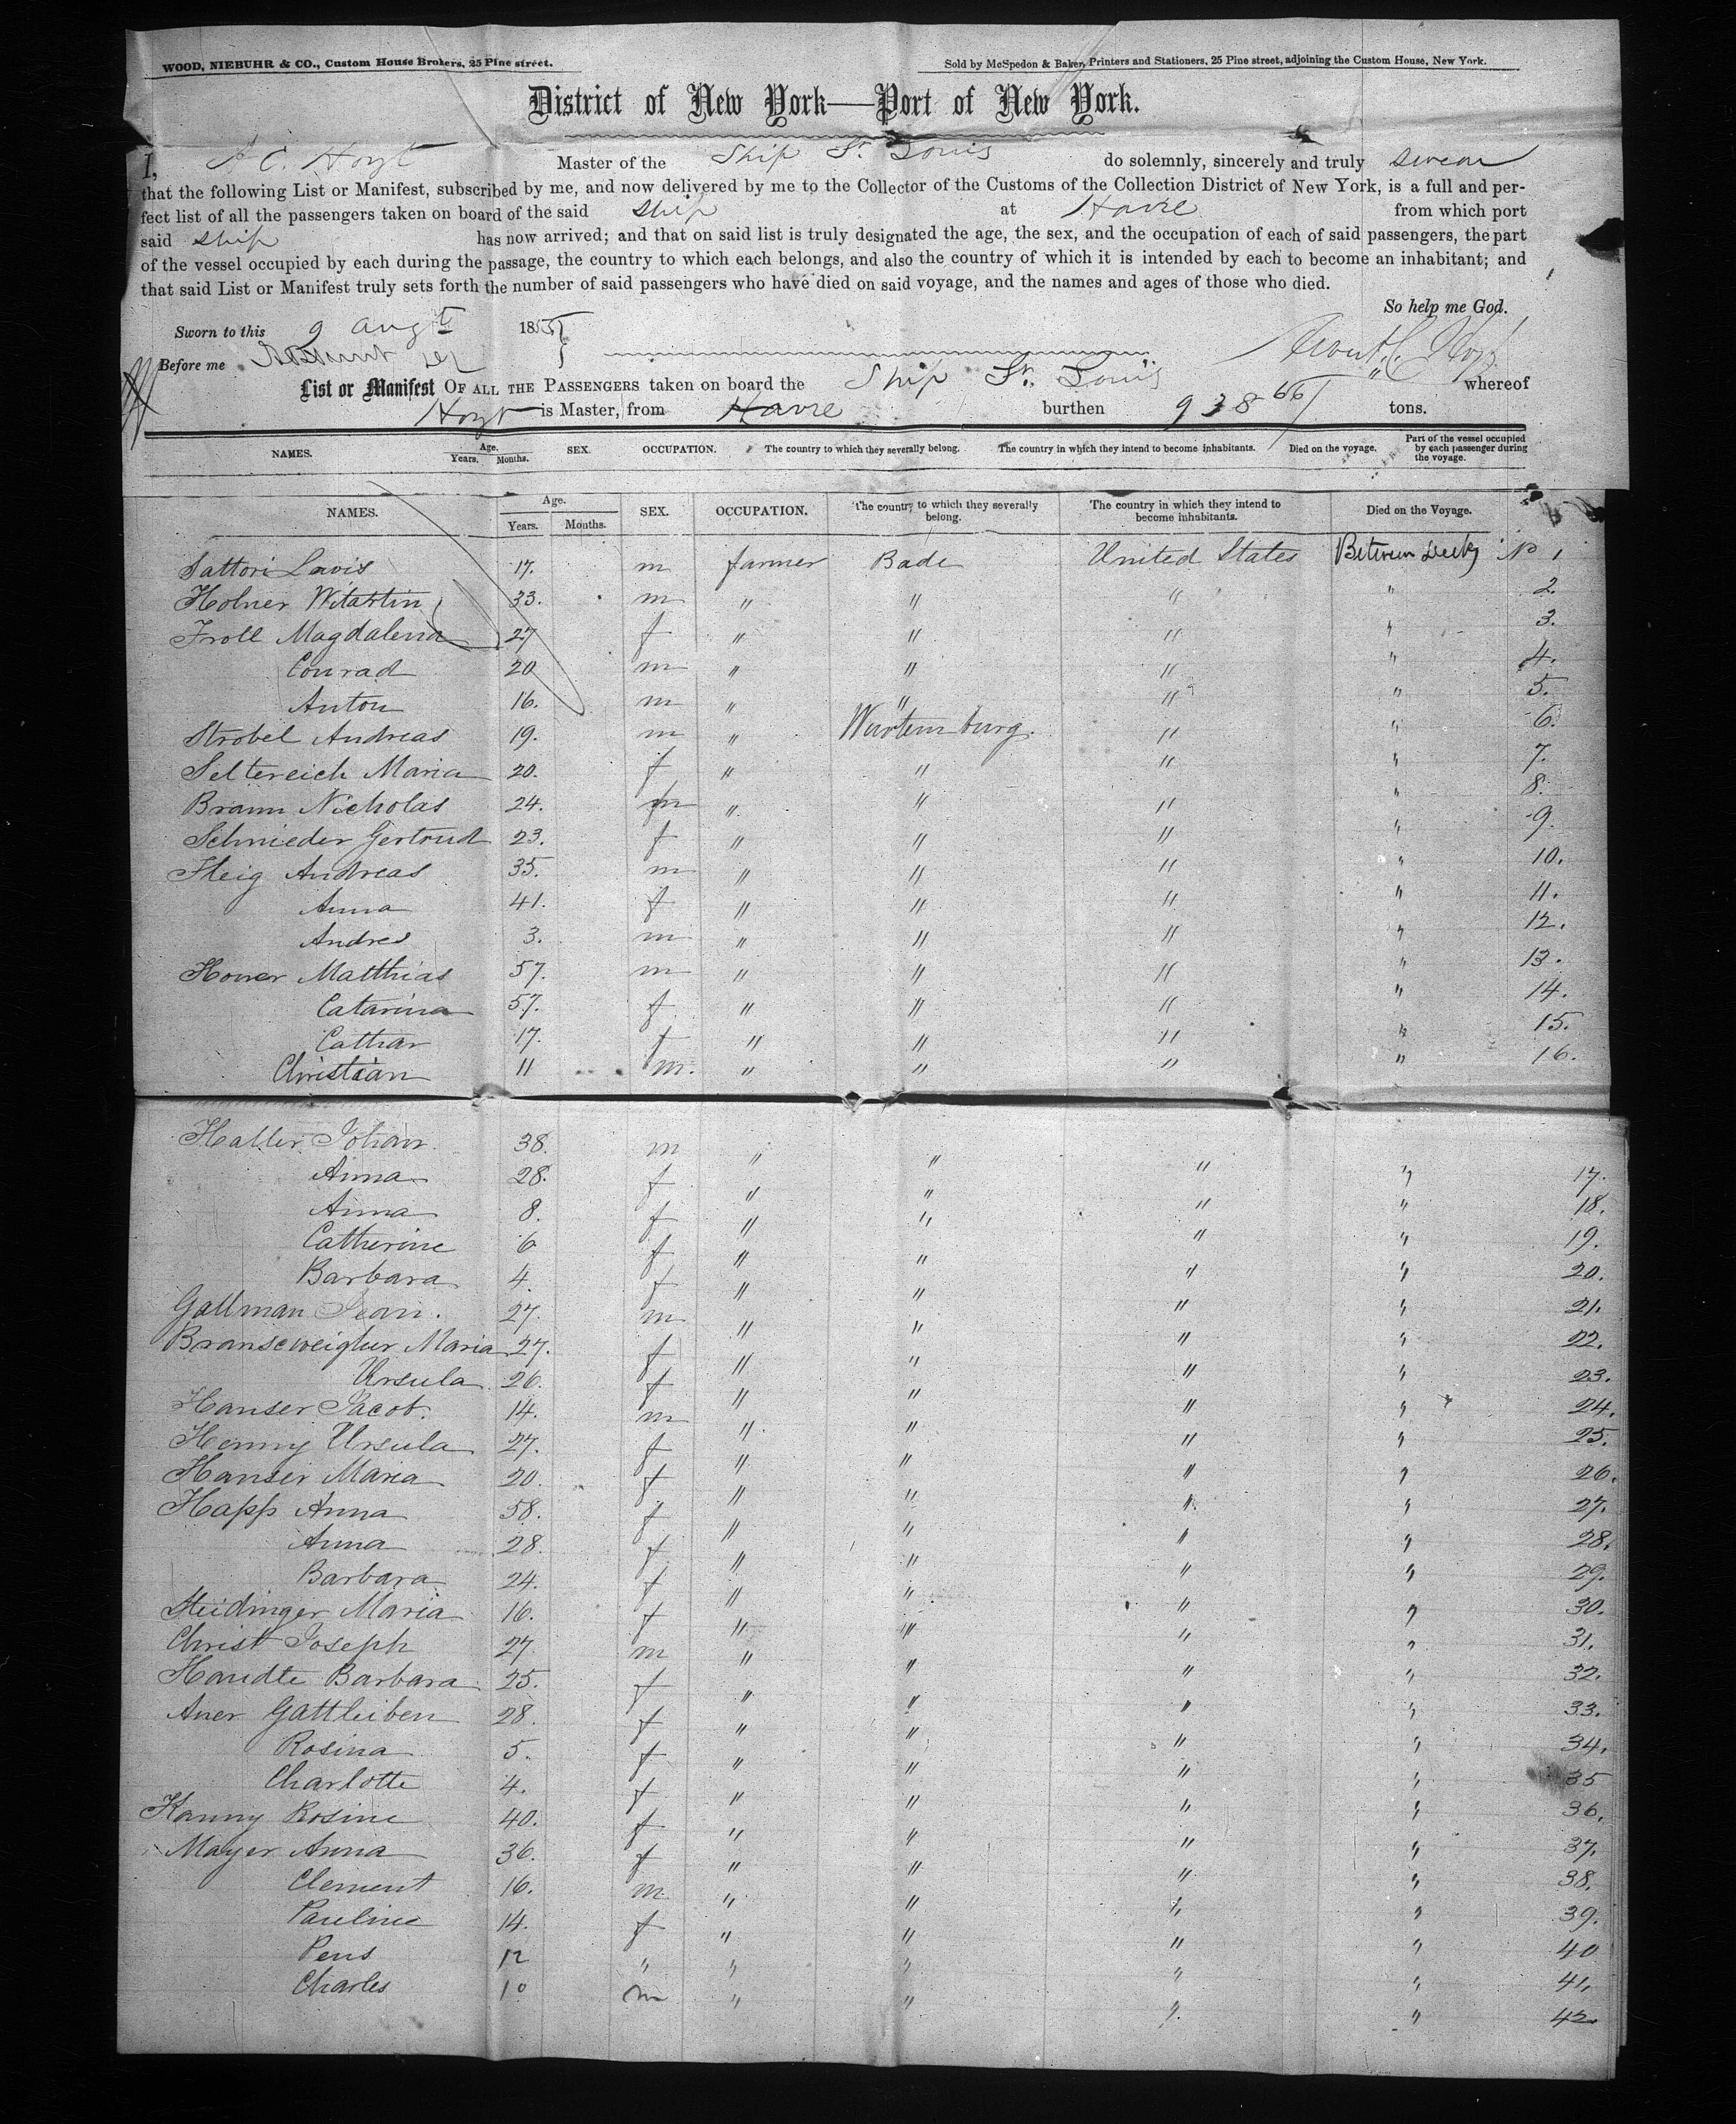 WOOD, NIEBUHR & CO., Custom House Brokers, 25 Pine street.
Sold by McSpedon & Baker, Printers and Stationers, 25 Pine street, adjoining the Custom House, New York.
District of New York—Port of New York.
I, A C. Hoyt Master of the Ship St. Louis do solemnly, sincerely and truly swear
that the following List or Manifest, subscribed by me, and now delivered by me to the Collector of the Customs of the Collection District of New York, is a full and per-
fect list of all the passengers taken on board of the said ship at Havre from which port
said ship has now arrived; and that on said list is truly designated the age, the sex, and the occupation of each of said passengers, the part
of the vessel occupied by each during the passage, the country to which each belongs, and also the country of which it is intended by each to become an inhabitant; and
that said List or Manifest truly sets forth the number of said passengers who have died on said voyage, and the names and ages of those who died.
So help me God.
Sworn to this 9 Augt 185
Before me
List or Manifest OF ALL THE PASSENGERS taken on board the Ship St. Louis whereof
Hoyt is Master, from Havre burthen 938 66/ tons.
NAMES. Age. Years. Months. SEX. OCCUPATION. The country to which they severally belong. The country in which they intend to become inhabitants. Died on the voyage. Part of the vessel occupied by each passenger during the voyage.
NAMES. Age. Years. Months. SEX. OCCUPATION. The country to which they severally belong. The country in which they intend to become inhabitants. Died on the Voyage.
Sattori Lavis 17. m farmer Bade United States Between Decks No 1
Holner 33. m " " " " 2.
Froll Magdalena 27 f " " " " 3.
Conrad 20 m " " " " 4.
Anton 16. m " " " " 5.
Strobel Andreas 19. m " Wurtemburg. " " 6.
Seltereich Maria 20. f " " " " 7.
Braun Nicholas 24. m " " " " 8.
Schnieder Gertrud 23. f " " " " 9.
Heig Andreas 35. m " " " " 10.
Anna 41. f " " " " 11.
Andres 3. m " " " " 12.
Honer Matthias 57. m " " " " 13.
Catarina 57. f " " " " 14.
Cathar 17. f " " " " 15.
Christian 11 m. " " " " 16.
Haller Johan 38. m " " " " 17.
Anna 28. f " " " " 18.
Anna 8. f " " " " 19.
Catherine 6 f " " " " 20.
Barbara 4. f " " " " 21.
Gallman Jean. 27. m " " " " 22.
Branseweigher Maria 27. f " " " " 23.
Ursula 26. f " " " " 24.
Hanser Jacob. 14. m " " " " 25.
Henny Ursula 27. f " " " " 26.
Hanser Maria 20. f " " " " 27.
Happ Anna 58. f " " " " 28.
Anna 28. f " " " " 29.
Barbara 24. f " " " " 30.
Heidinger Maria 16. f " " " " 31.
Christ Joseph 27 m " " " " 32.
Handte Barbara 25. f " " " " 33.
Auer Gattleiben 28. f " " " " 34.
Rosina 5. f " " " " 35
Charlotte 4. f " " " " 36.
Kanny Rosine 40. f " " " " 37.
Mayer Anna 36. f " " " " 38.
Clement 16. m " " " " 39.
Pauline 14. f " " " " 40
Pens 12 " " " " " 41.
Charles 10 m " " " " 42.